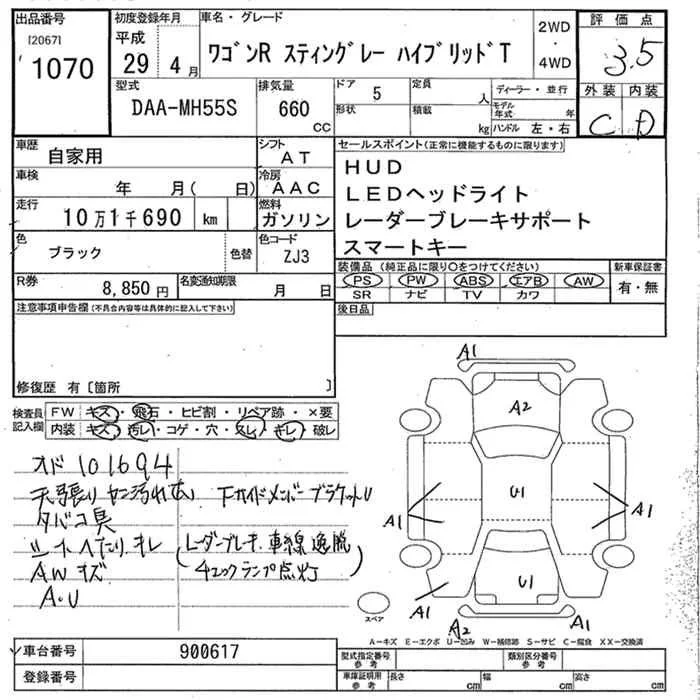 出品番号 初度登録年月 車名・グレード 2WD・4WD 評価点
[2067]
1070 平成29年4月 ワゴンR スティングレー ハイブリッドT 3.5
型式 排気量 ドア 定員 ディーラー・並行 外装 内装
DAA-MH55S 660 CC 5 人 モデル年式 年 C D
形状 積載 kg ハンドル 左・右
車歴 自家用 シフト AT セールスポイント(正常に機能するものに限ります)
車検 年 月( 日) 冷房 AAC HUD
走行 10万1千690 km 燃料 ガソリン LEDヘッドライト
レーダーブレーキサポート
色 ブラック 色替 色コード ZJ3 スマートキー
R券 8,850円 名変通知期限 月 日 装備品(純正品に限り○をつけてください) 新車保証書
PS PW ABS エアB AW 有・無
SR ナビ TV カワ
注意事項申告欄(不具合内容等は具体的に記入して下さい) 後日品
修復歴 有〔箇所 〕
検査員記入欄 FW キズ・飛石・ヒビ割・リペア跡・×要
内装 キズ・汚レ・コゲ・穴・スレ・キレ・破レ
オド101694
天張り ヤニ汚れあり 下サイドメンバーブラケットU
タバコ臭
シートヘたり、キレ (レーダーブレーキ、車線逸脱
AWキズ 4エックランプ点灯)
A・U
A1
A2
U1
A1 A1
U1
A1 A2 A1
スペア
A-キズ E-エクボ U-凹み W-補修跡 S-サビ C-腐食 XX-交換済
車台番号 900617 型式指定番号 参考 類別区分番号 参考
登録番号 車庫証明用 参考 長さ cm 幅 cm 高さ cm